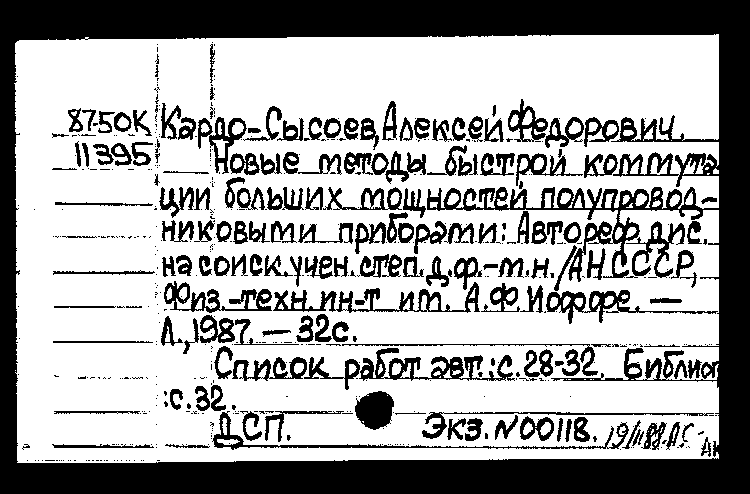 87-50К Кардо-Сысоев, Алексей Федорович.
11395 Новые методы быстрой коммута-
ции больших мощностей полупровод-
никовыми приборами: Автореф. дис.
на соиск. учен. степ. д.ф.-м.н. /АН СССР,
Физ.-техн. ин-т им. А.Ф. Иоффе. —
Л., 1987. — 32с.
Список работ авт.: с. 28-32. Библиог
: с. 32.
ДСП. Экз. N00118.